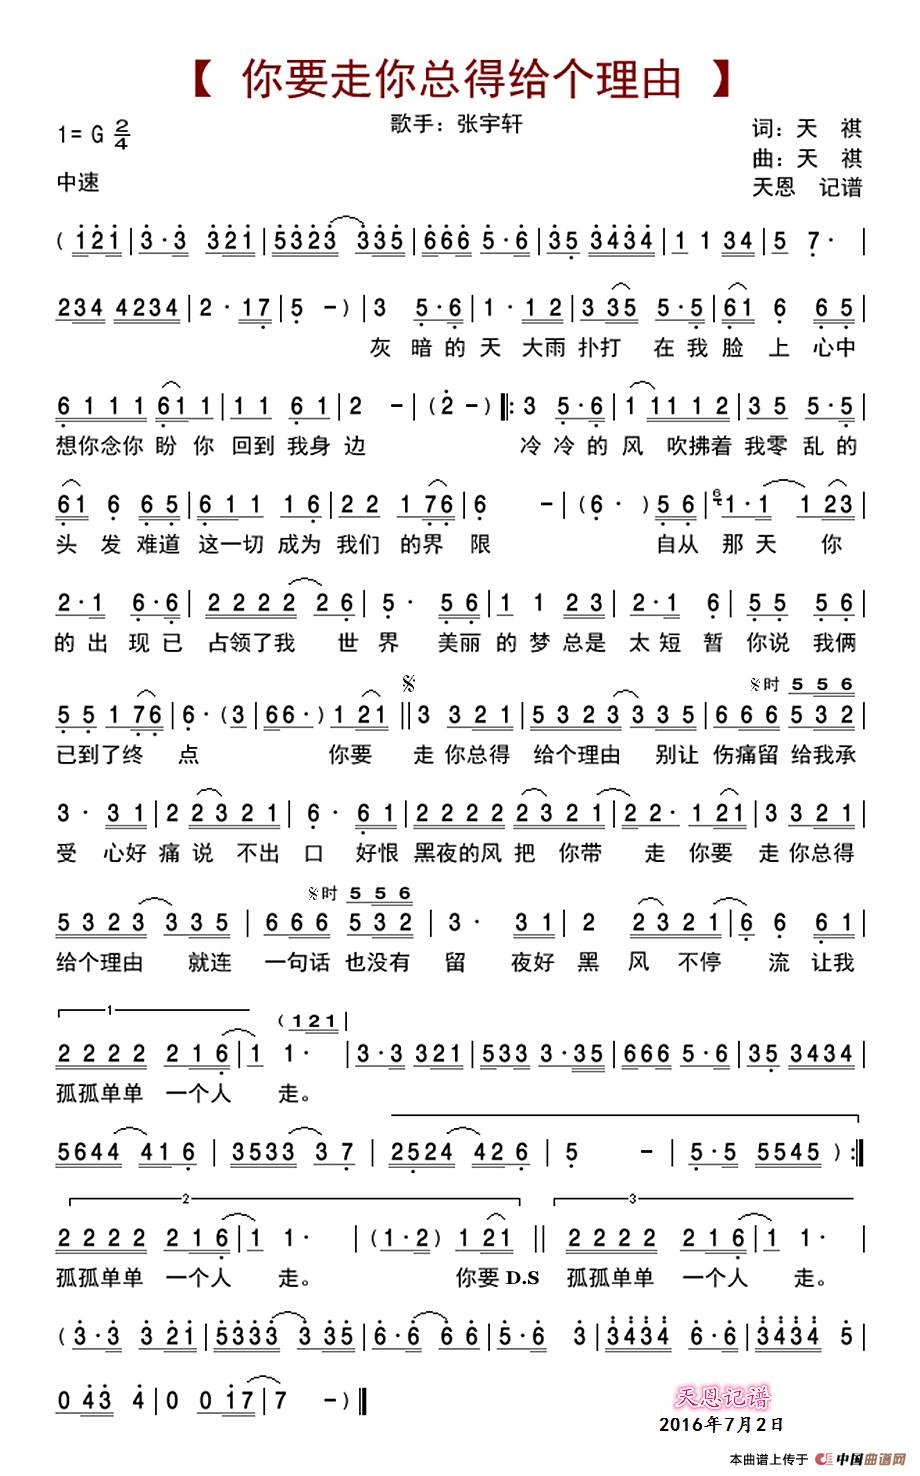 【 你要走你总得给个理由 】
歌手：张宇轩
1= G 2/4
词：天 祺
曲：天 祺
中速
天恩 记谱
( 1 2 1 | 3 · 3 3 2 1 | 5 3 2 3 3 3 5 | 6 6 6 5 · 6 | 3 5 3 4 3 4 | 1 1 3 4 | 5 7 · |
2 3 4 4 2 3 4 | 2 · 1 7 | 5 - ) | 3 5 · 6 | 1 · 1 2 | 3 3 5 5 · 5 | 6 1 6 6 5 |
灰 暗 的 天 大雨 扑打 在 我 脸 上 心中
6 1 1 1 6 1 1 | 1 1 6 1 | 2 - | ( 2 - ) ‖: 3 5 · 6 | 1 1 1 1 2 | 3 5 5 · 5 |
想你念你 盼 你 回到 我身 边 冷 冷 的 风 吹拂着 我零 乱 的
6 1 6 6 5 | 6 1 1 1 6 | 2 2 1 7 6 | 6 - | ( 6 · ) 5 6 | 6 1 · 1 1 2 3 |
头 发 难道 这一切 成为 我们 的界 限 自从 那 天 你
2 · 1 6 · 6 | 2 2 2 2 2 6 | 5 · 5 6 | 1 1 2 3 | 2 · 1 6 | 5 5 5 6 |
的 出 现 已 占领了我 世 界 美丽 的 梦 总是 太 短 暂 你说 我俩
𝄋 𝄋时 5 5 6
5 5 1 7 6 | 6 · ( 3 | 6 6 · ) 1 2 1 ‖ 3 3 2 1 | 5 3 2 3 3 3 5 | 6 6 6 5 3 2 |
已到了终 点 你要 走 你总得 给个理由 别让 伤痛留 给我承
3 · 3 1 | 2 2 3 2 1 | 6 · 6 1 | 2 2 2 2 2 3 2 1 | 2 2 · 1 2 1 | 3 3 2 1 |
受 心好 痛 说 不出 口 好恨 黑夜的风 把 你带 走 你要 走 你总得
𝄋时 5 5 6
5 3 2 3 3 3 5 | 6 6 6 5 3 2 | 3 · 3 1 | 2 2 3 2 1 | 6 6 6 1 |
给个理由 就连 一句话 也没有 留 夜好 黑 风 不停 流 让我
1 ( 1 2 1 |
2 2 2 2 2 1 6 | 1 1 · | 3 · 3 3 2 1 | 5 3 3 3 · 3 5 | 6 6 6 5 · 6 | 3 5 3 4 3 4 |
孤孤单单 一个人 走。
5 6 4 4 4 1 6 | 3 5 3 3 3 7 | 2 5 2 4 4 2 6 | 5 - | 5 · 5 5 5 4 5 ) :‖
2 3
2 2 2 2 2 1 6 | 1 1 · | ( 1 · 2 ) 1 2 1 ‖ 2 2 2 2 2 1 6 | 1 1 · |
孤孤单单 一个人 走。 你要 D.S 孤孤单单 一个人 走。
( 3 · 3 3 2 1 | 5 3 3 3 3 3 5 | 6 · 6 6 6 | 5 · 6 3 | 3 4 3 4 6 · 6 | 3 4 3 4 5 |
0 4 3 4 | 0 0 1 7 | 7 - ) ‖
天恩记谱
2016年7月2日
本曲谱上传于 中国曲谱网